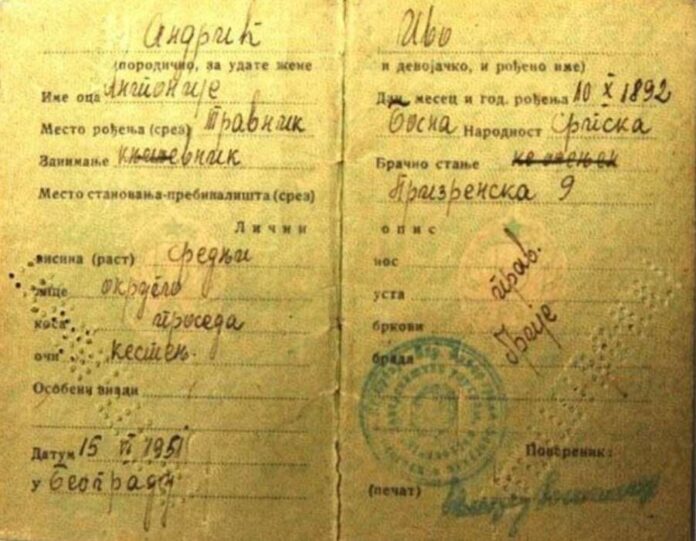 Андрић Иво
(породично, за удате жене и девојачко, и рођено име)
Име оца Антоније Дан, месец и год. рођења 10 X 1892
Место рођења (срез) Травник Босна Народност Српска
Занимање књижевник Брачно стање не ожењен
Место становања-пребивалишта (срез) Призренска 9
Лични опис
висина (раст) средњи нос прав.
лице округло уста
коса проседа бркови
очи кестењ. брада
Особени знаци
Датум 15 VI 1951
У Београду
Повереник:
(печат)